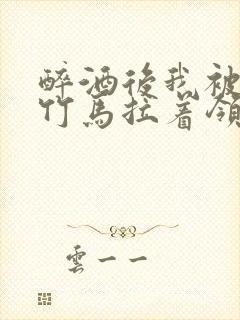 醉酒後我被
竹馬拉着領
雲一一